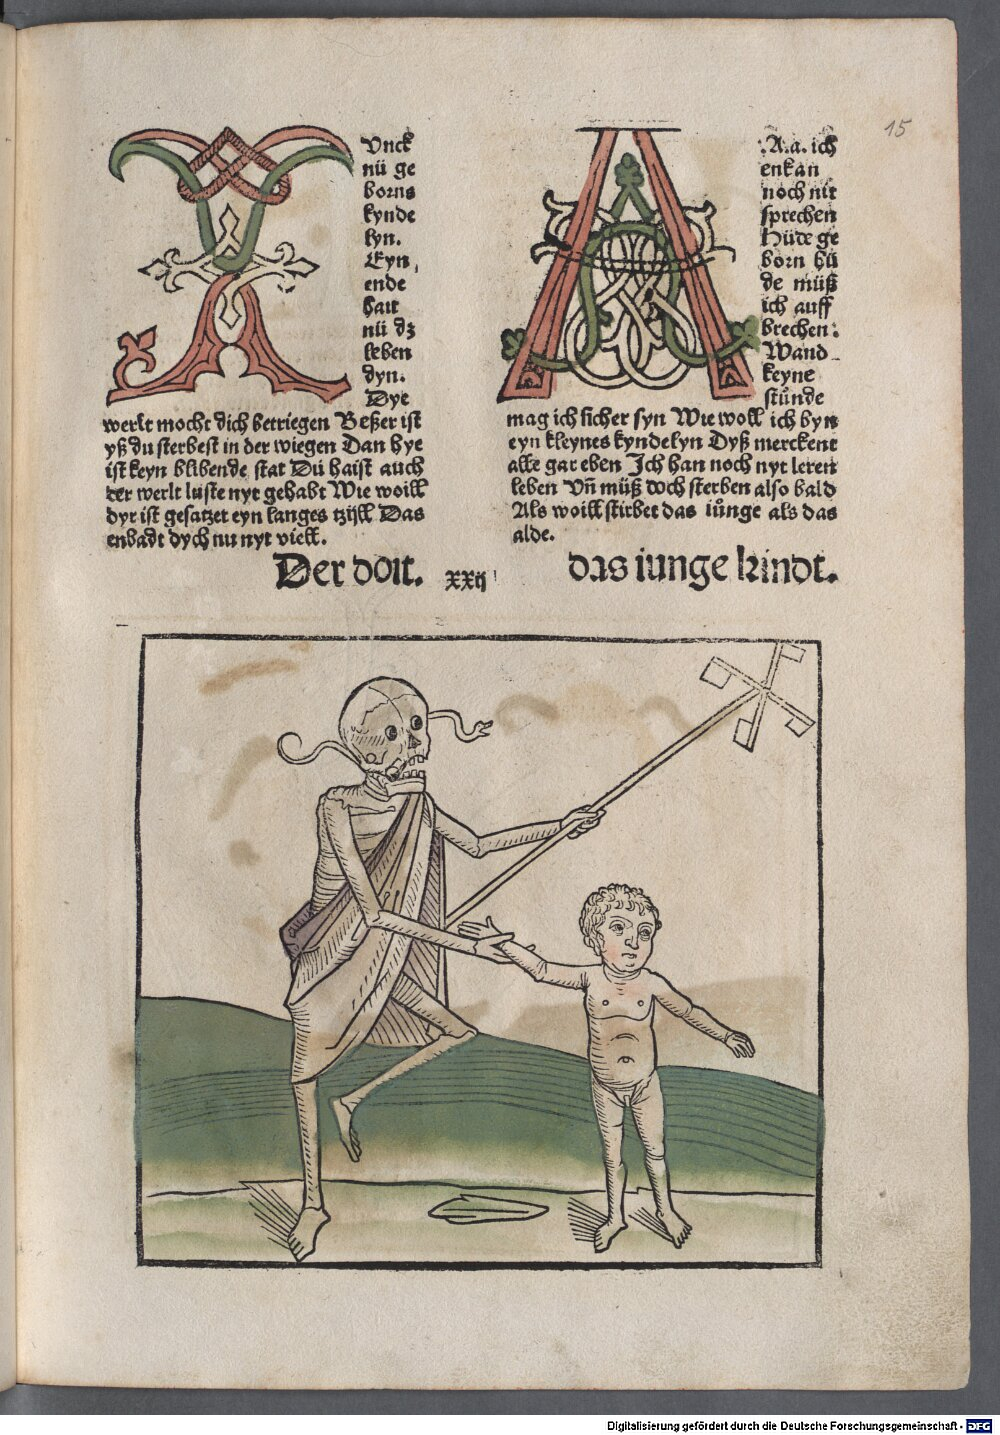 15
Junck
nü ge
borns
kynde
lyn.
Eyn
ende
hait
nü dz
leben
dyn.
Dye
werlt mocht dich betriegen Beßer ist
yß du sterbest in der wiegen Dan hye
ist keyn blibende stat Dü haist auch
der werlt luste nyt gehabt Wie woill
dyr ist gesatzet eyn langes tzijll Das
enbadt dych nu nyt viell.
Der doit.
A.a.a. ich
enkan
noch nit
sprechen
Hüde ge
born hü
de müß
ich auff
brechen:
Wand
keyne
stůnde
mag ich sicher syn Wie woll ich byn
eyn kleynes kyndelyn Dyß merckent
alle gar eben Jch han noch nyt leren
leben Vn̄ müß doch sterben also bald
Als woill stirbet das iůnge als das
alde.
das iunge kindt.
xxij
Digitalisierung gefördert durch die Deutsche Forschungsgemeinschaft - DFG